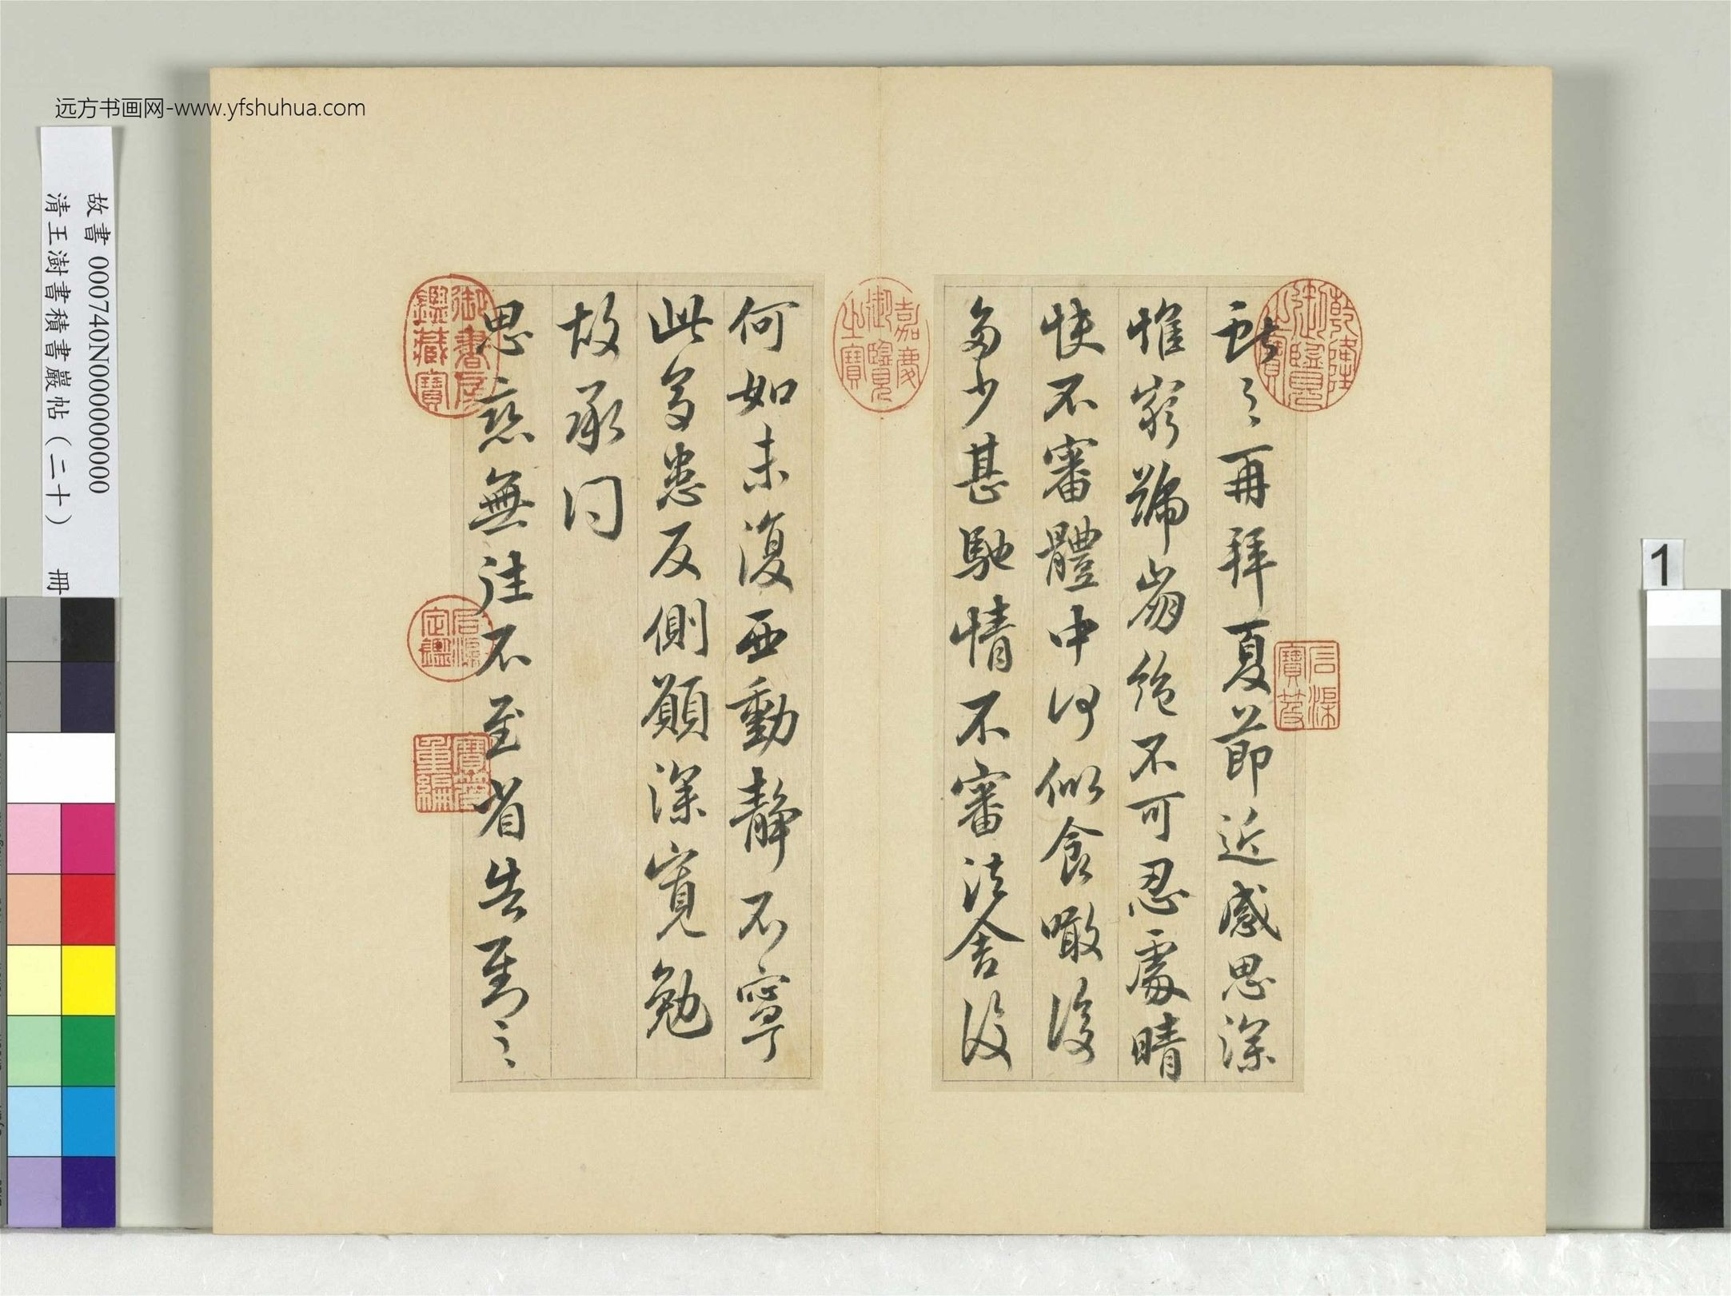 远方书画网-www.yfshuhua.com
故書 000740N000000000
清王澍書積書巖帖（二十） 冊
1
乾隆御覽之寶
石渠寶笈
獻之再拜夏節近感思深
惟窮號崩絶不可忍處晴
快不審體中何似食噉復
多少甚馳情不審舍復
嘉慶御覽之寶
何如未復西動靜不寧
此多患反側願深寬勉
故承問
思戀無往不至省告對之
御書房鑑藏寶
石渠定鑑
寶笈重編